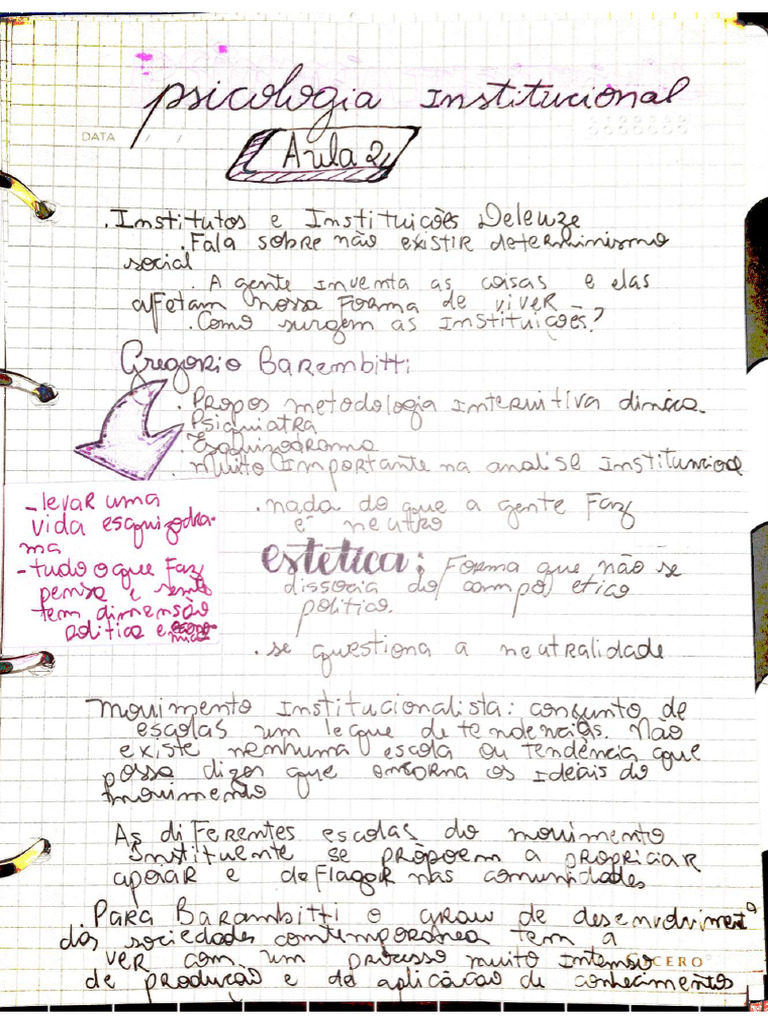 psicologia Institucional
DATA / /
Aula 2
. Institutos e Instituições Deleuze
. Fala sobre não existir determinismo
social
. A gente inventa as coisas e elas
afetam nossa forma de viver
. Como surgem as instituições?
Gregorio Barembitti
. Propos metodologia interuitiva clinica.
. Psiquiatra
. Esquizodrama
. Muito importante na analise Institucional
- levar uma
vida esquizodra-
ma
- tudo o que faz
pensa e sente
tem dimensão
politica e
. nada do que a gente faz
é neutro
estética: Forma que não se
dissocia do campo etico
politico.
. se questiona a neutralidade
Movimento Institucionalista: conjunto de
escolas um leque de tendencias. Não
existe nenhuma escola ou tendência que
possa dizer que encorna os ideais do
movimento
As diferentes escolas do movimento
Instituente se propoem a propriciar
apoiar e deflagar nas comunidades
. Para Barambitti o grau de desenvolvimento
das sociedades contemporanea tem a
ver com um processo muito intenso
de produção e de aplicação de conhecimentos
CÍCERO